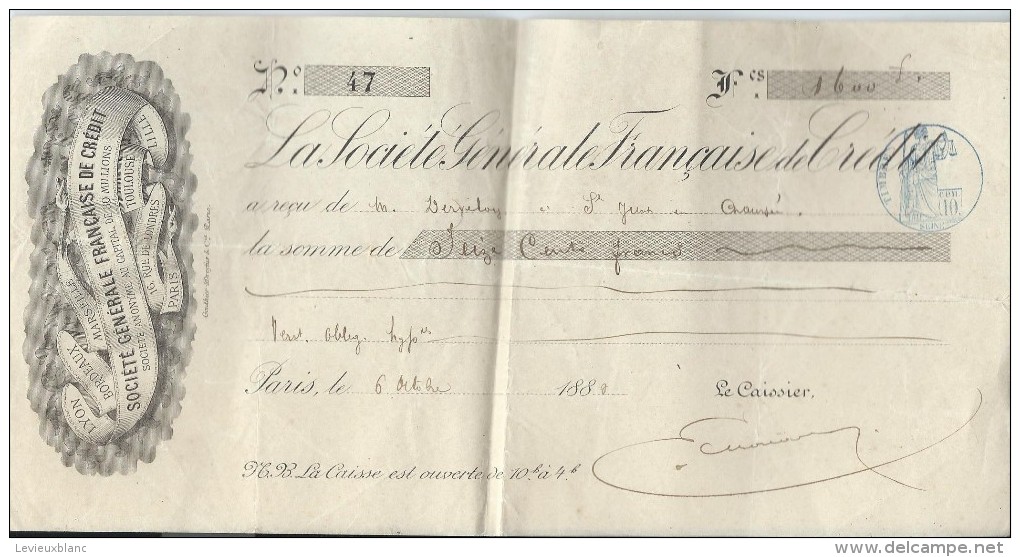 LYON
BORDEAUX
MARSEILLE
LILLE
SOCIÉTÉ GÉNÉRALE FRANÇAISE DE CRÉDIT
SOCIÉTÉ ANONYME AU CAPITAL DE MILLIONS
TOULOUSE
16, RUE DE LONDRES
PARIS
No. 47
Fcs. 1600 f.
La Société Générale Française de Crédit
a reçu de M. St Jean
la somme de Seize Cents francs
Vers. Oblig. hypres
Paris, le 6 Octobre 1888
Le Caissier,
N.B. La Caisse est ouverte de 10h à 4h
10
Levieuxblanc
delcampe.net